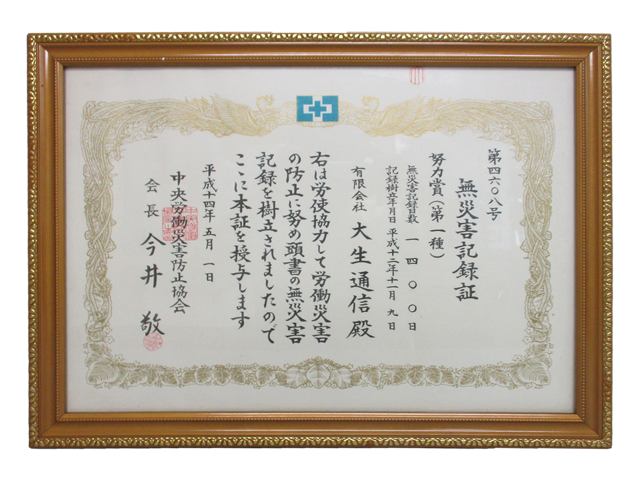 第四六〇八号
無災害記録証
努力賞(第一種)
無災害記録日数 一四〇〇日
記録樹立年月日 平成十二年十一月九日
有限会社 大生通信殿
右は労使協力して労働災害
の防止に努め頭書の無災害
記録を樹立されましたので
ここに本証を授与します
平成十四年五月一日
中央労働災害防止協会
会長 今井敬